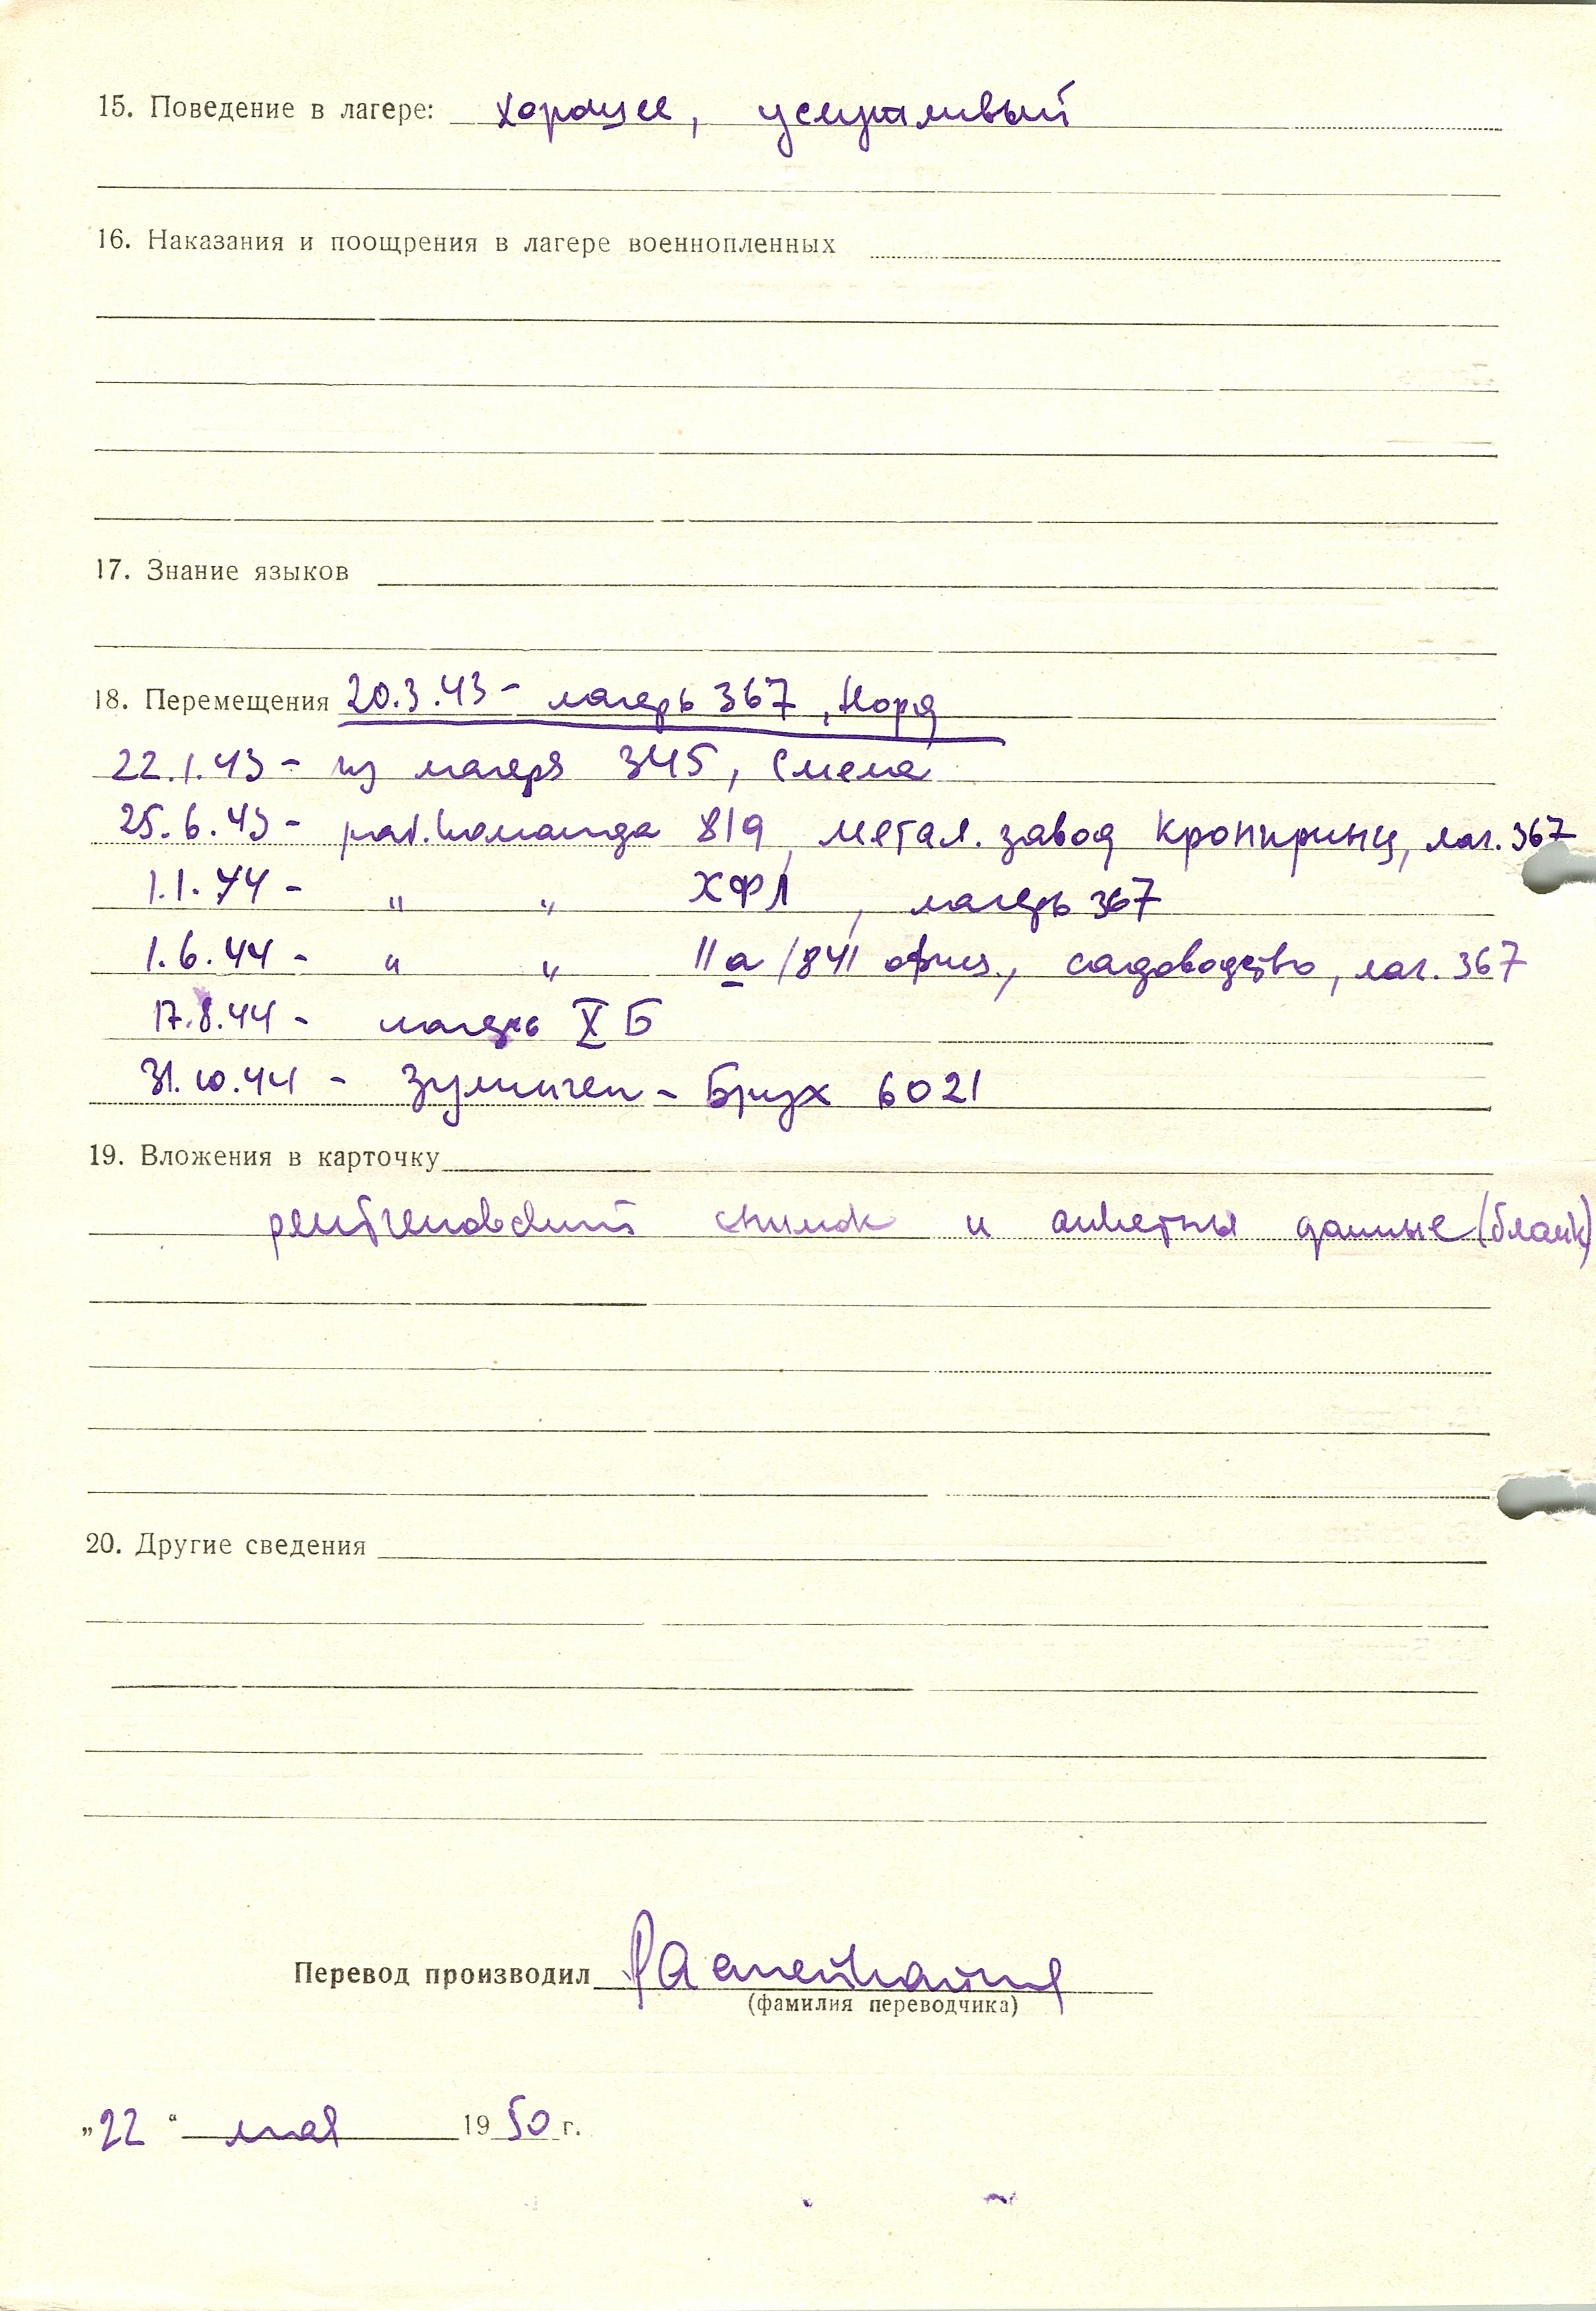 15. Поведение в лагере: хорошее, услужливый
16. Наказания и поощрения в лагере военнопленных
17. Знание языков
18. Перемещения 20.3.43 - лагерь 367, Норд
22.1.43 - из лагеря 345, Смела
25.6.43 - раб. команда 819, метал. завод Кронпринц, лаг. 367
1.1.44 - " " ХФЛ, лагерь 367
1.6.44 - " " IIа/841 офиц., садоводство, лаг. 367
17.8.44 - лагерь X Б
31.10.44 - Зулинген - Брух 6021
19. Вложения в карточку
рентгеновский снимок и анкетны данные (бланк)
20. Другие сведения
Перевод производил
(фамилия переводчика)
„22“ мая 1950 г.